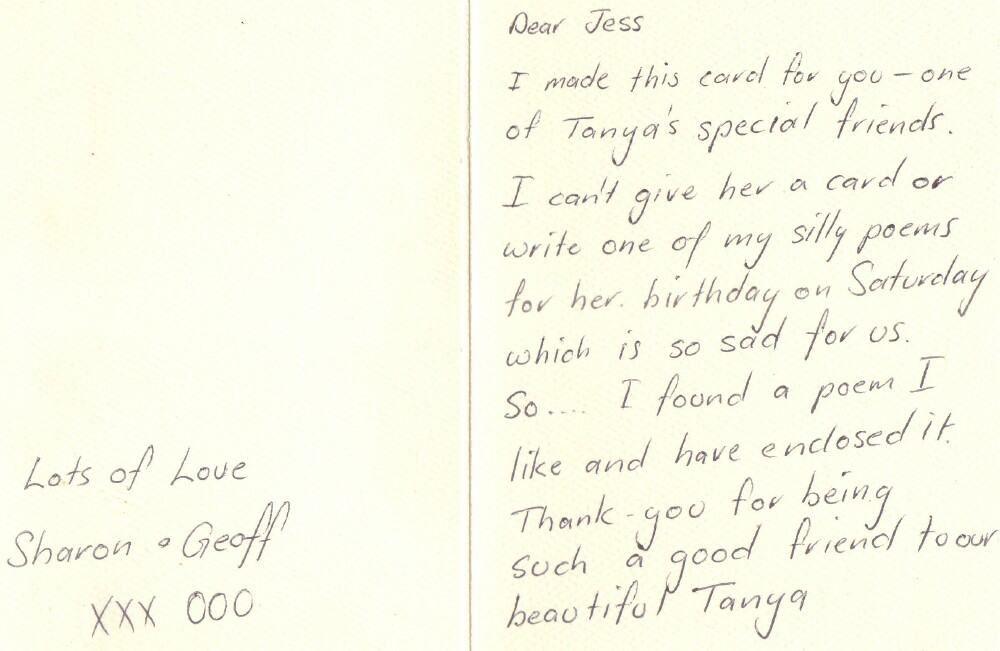 Dear Jess
I made this card for you – one
of Tanya's special friends.
I can't give her a card or
write one of my silly poems
for her. birthday on Saturday
which is so sad for us.
So.... I found a poem I
like and have enclosed it.
Thank-you for being
such a good friend to our
beautiful Tanya
Lots of Love
Sharon & Geoff
XXX OOO